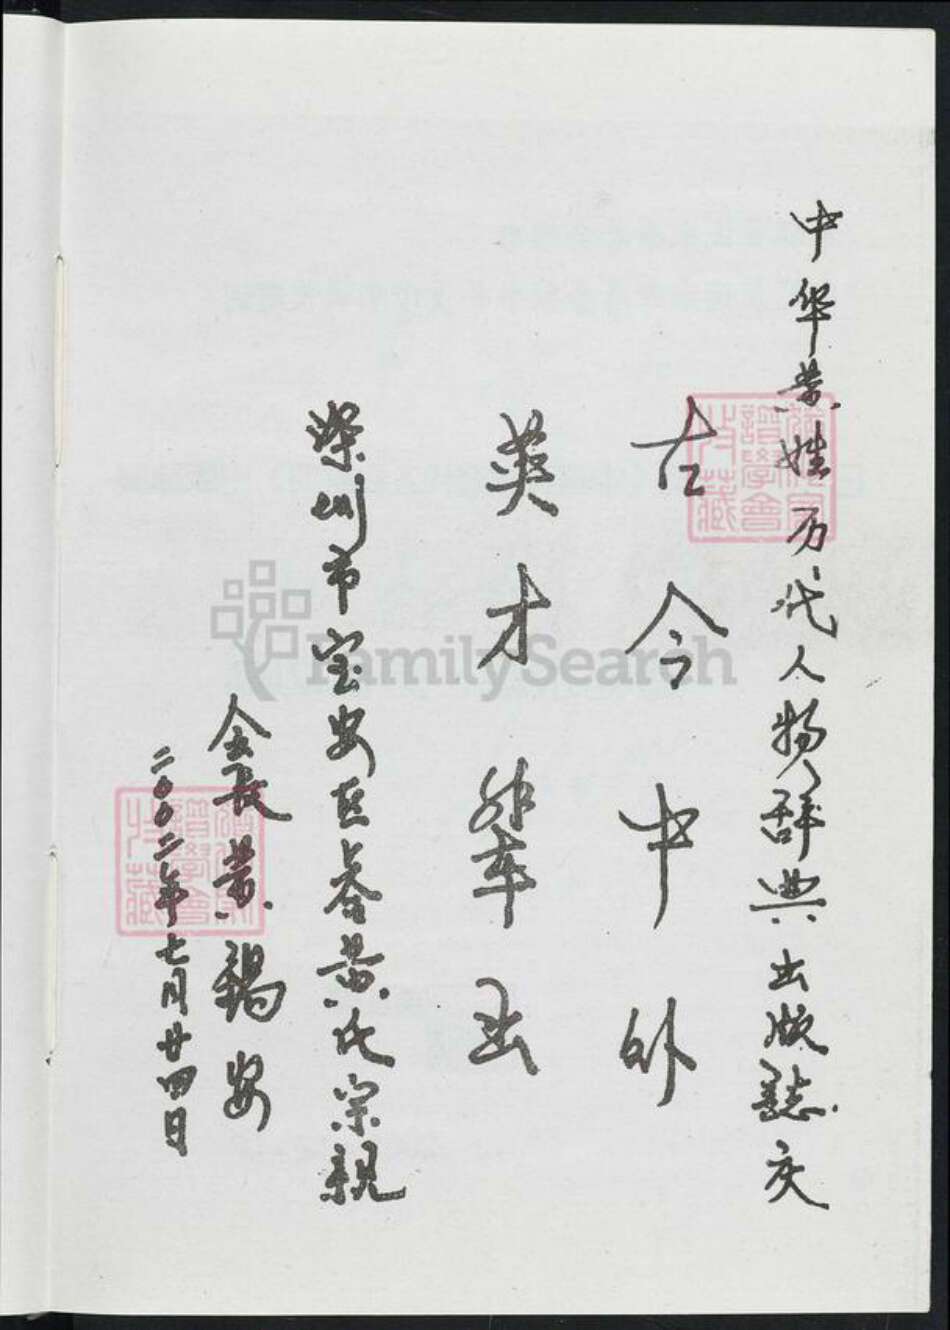 中华黄姓历代人物辞典出版誌庆
古今中外
英才辈出
深圳市宝安区合黄氏宗親
会長黄錫安
二00二年七月廿四日
FamilySearch